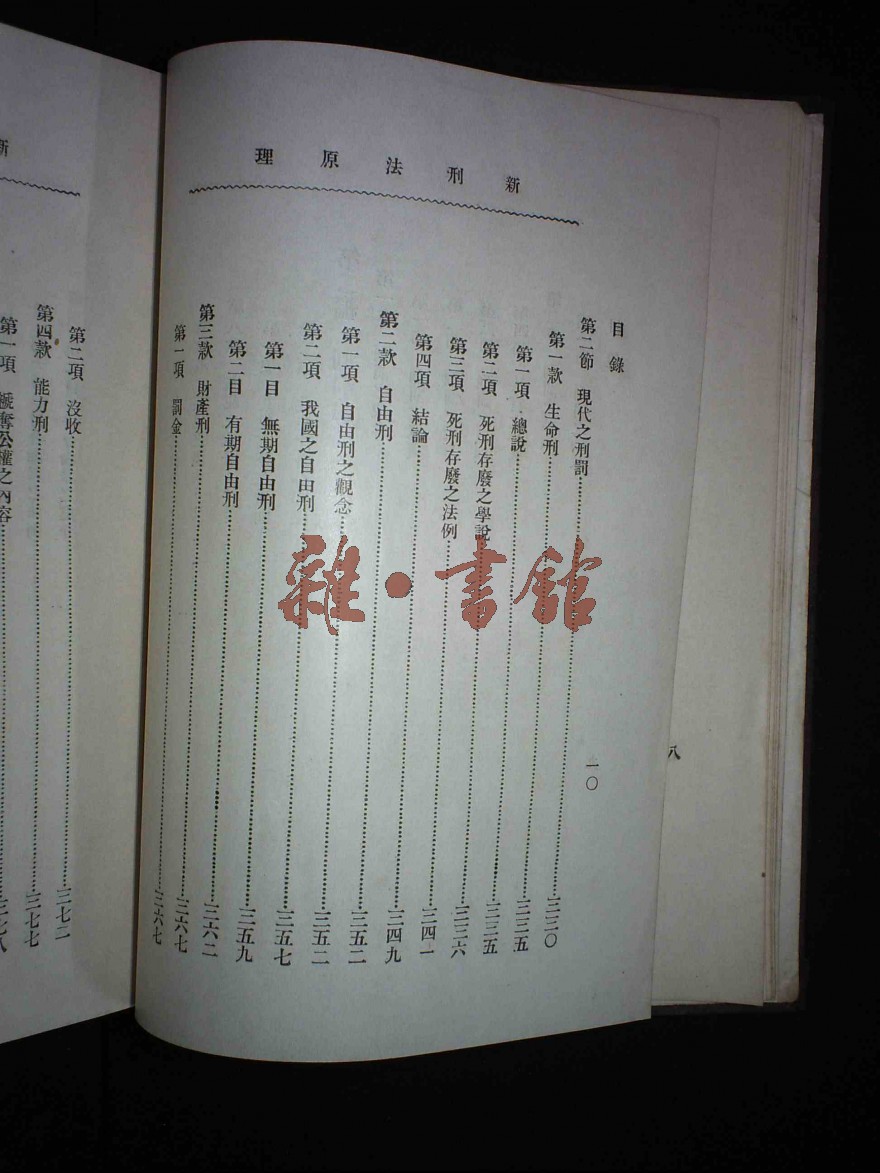 新刑法原理
目錄
一〇
第二節 現代之刑罰……三三〇
第一款 生命刑……三三五
第一項 總說……三三五
第二項 死刑存廢之學說……三三六
第三項 死刑存廢之法例……三四一
第四項 結論……三四九
第二款 自由刑……三五二
第一項 自由刑之觀念……三五二
第二項 我國之自由刑……三五七
第一目 無期自由刑……三五九
第二目 有期自由刑……三六二
第三款 財產刑……三六七
第一項 罰金……三六七
新
第二項 沒收……三七二
第四款 能力刑……三七七
第一項 褫奪公權之內容……三七八
八
雜·書館